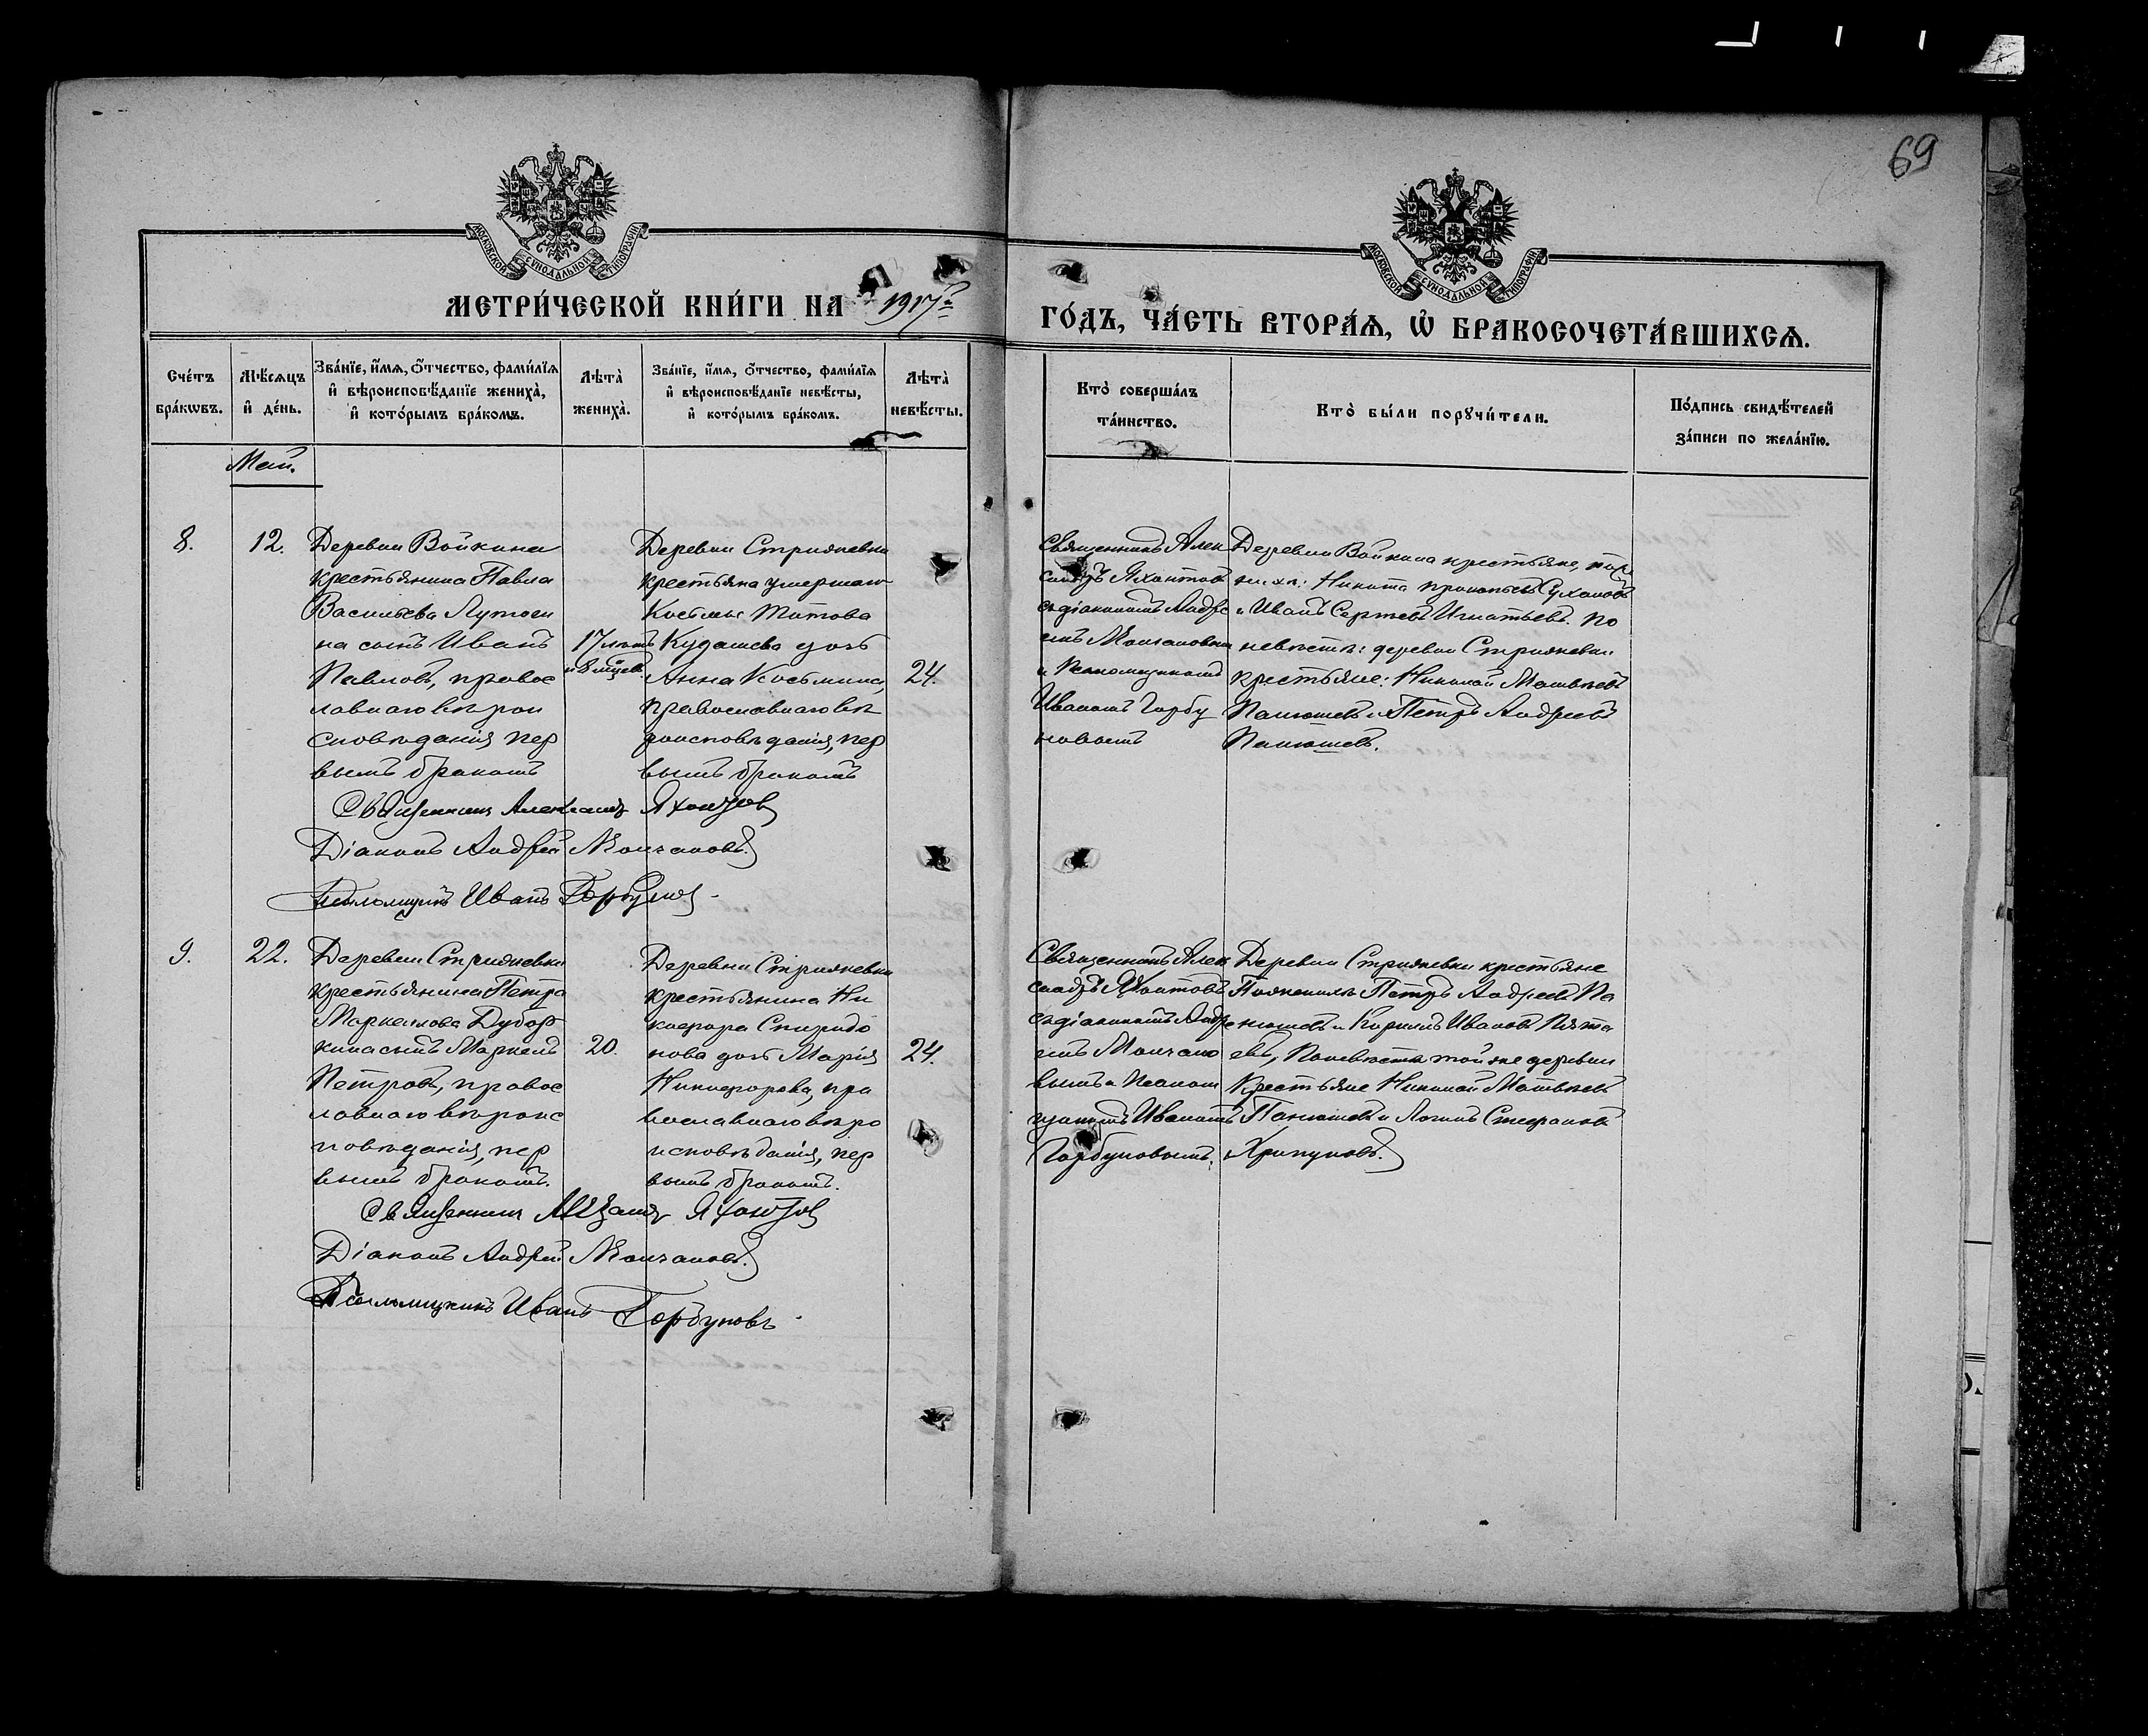 69
МОСКОВСКОЙ СѴНОДАЛЬНОЙ ТИПОГРАФІИ
МОСКОВСКОЙ СѴНОДАЛЬНОЙ ТИПОГРАФІИ
МЕТРИ́ЧЕСКОЙ КНИ́ГИ НА 1917 г.
ГО́ДЪ, ЧА́СТЬ ВТОРА́Ѧ, Ѡ БРАКОСОЧЕТА́ВШИХСѦ.
Сче́тъ
бра́кѡвъ.
Мѣ́сѧцъ
и҆ де́нь.
Зва́нїе, и҆́мѧ, ѻ҆́тчество, фами́лїѧ
и҆ вѣроисповѣ́данїе жениха̀,
и҆ кото́рымъ бра́комъ.
Лѣта̀
жениха̀.
Зва́нїе, и҆́мѧ, ѻ҆́тчество, фами́лїѧ
и҆ вѣроисповѣ́данїе невѣ́сты,
и҆ кото́рымъ бра́комъ.
Лѣта̀
невѣ́сты.
Кто̀ соверша́лъ
та́инство.
Кто̀ бы́ли порꙋчи́тели.
По́дпись свидѣ́телей
за́писи по жела́нїю.
Май.
8.
12.
Деревни Войкина
крестьянина Павла
Васильева Лутоги
на сынъ Иванъ
Павловъ, правос
лавнаго вѣрои
сповѣданія, пер
вымъ бракомъ
17 лѣтъ
и 8 мѣсяц.
Деревни Стрижневки
крестьяна умершаго
Космы Титова
Кудашева дочь
Анна Косьмина,
православнаго вѣ
роисповѣданія, пер
вымъ бракомъ
24.
Священникъ Алек
сандръ Яхонтовъ
съ діакономъ Андре
емъ Молчановым
и Псаломщикомъ
Иваномъ Горбу
новымъ
Деревни Войкина крестьяне, по же
нихѣ: Никита Прокопьевъ Сухановъ
и Иванъ Сергѣевъ Игнатьевъ. По
невѣстѣ: деревни Стрижневки
крестьяне: Николай Матвѣевъ
Панюшевъ и Петръ Андреевъ
Панюшевъ.
Священникъ Александръ Яхонтовъ
Діаконъ Андрей Молчановъ.
Псаломщикъ Иванъ Горбунов
9.
22.
Деревни Стрижневки
крестьянина Петра
Маркелова Дубор
кина сынъ Маркелъ
Петровъ, правос
лавнаго вѣроис
повѣданія, пер
вымъ бракомъ.
20.
Деревни Стрижневки
крестьянина Ни
кифора Спиридо
нова дочь Марія
Никифорова, пра
вославнаго вѣро
исповѣданія, пер
вымъ бракомъ.
24.
Священникъ Алек
сандръ Яхонтовъ
съ діакономъ Андре
емъ Молчано
вымъ и Псалом
щикомъ Иваномъ
Горбуновымъ.
Деревни Стрижневки крестьяне
По женихѣ Петръ Андреевъ Па
нюшевъ и Корнилъ Ивановъ Пята
евъ, По невѣстѣ той же деревни
Крестьяне Николай Матвѣевъ
Панюшевъ и Логинъ Стефановъ
Хрипуновъ.
Священникъ Александръ Яхонтовъ
Діаконъ Андрей Молчановъ.
Псаломщикъ Иванъ Горбуновъ